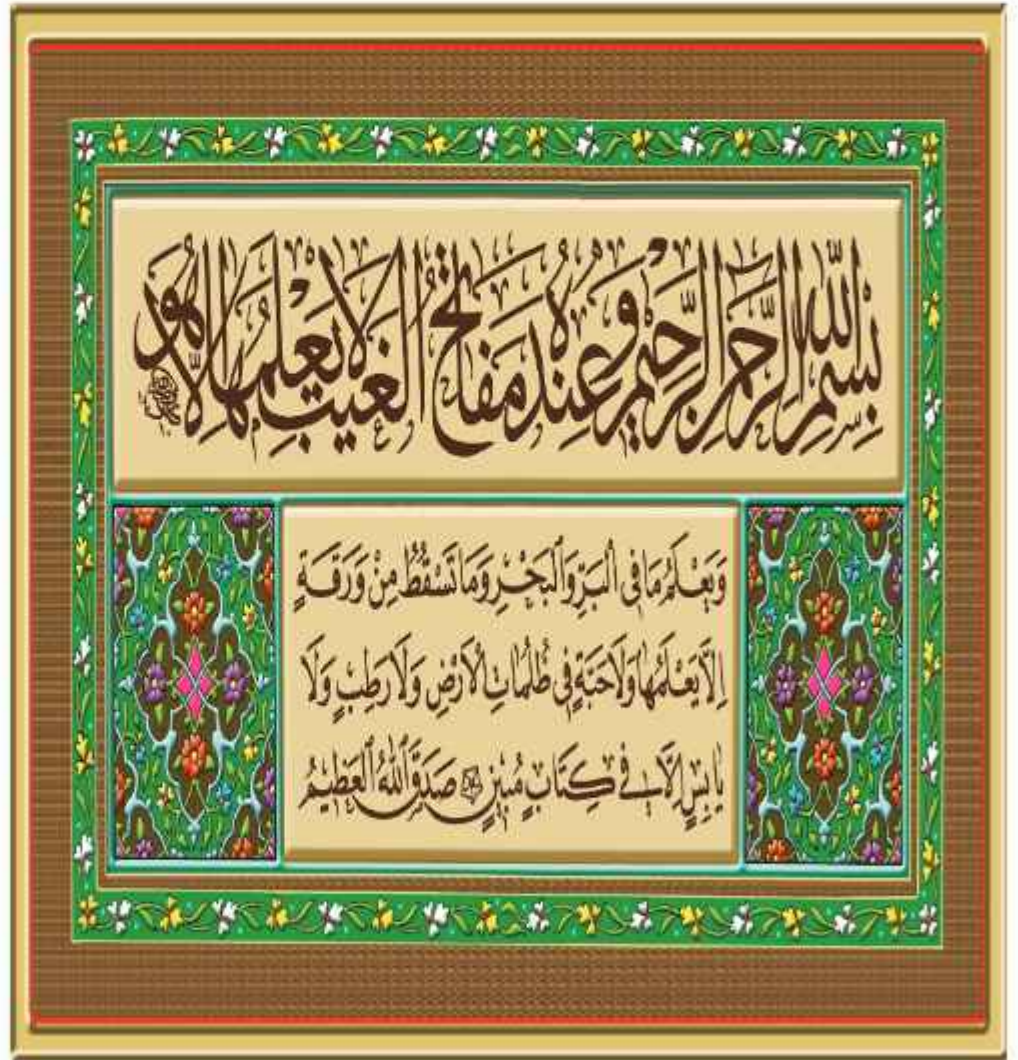 بِسْمِ اللهِ الرَّحْمٰنِ الرَّحِيمِ وَعِنْدَهُ مَفَاتِحُ الْغَيْبِ لَا يَعْلَمُهَا إِلَّا هُوَ
وَيَعْلَمُ مَا فِي الْبَرِّ وَالْبَحْرِ وَمَا تَسْقُطُ مِنْ وَرَقَةٍ
اِلَّا يَعْلَمُهَا وَلَا حَبَّةٍ فِي ظُلُمَاتِ الْاَرْضِ وَلَا رَطْبٍ وَلَا
يَابِسٍ اِلَّا فِي كِتَابٍ مُبِينٍ صَدَقَ اللهُ الْعَظِيمُ